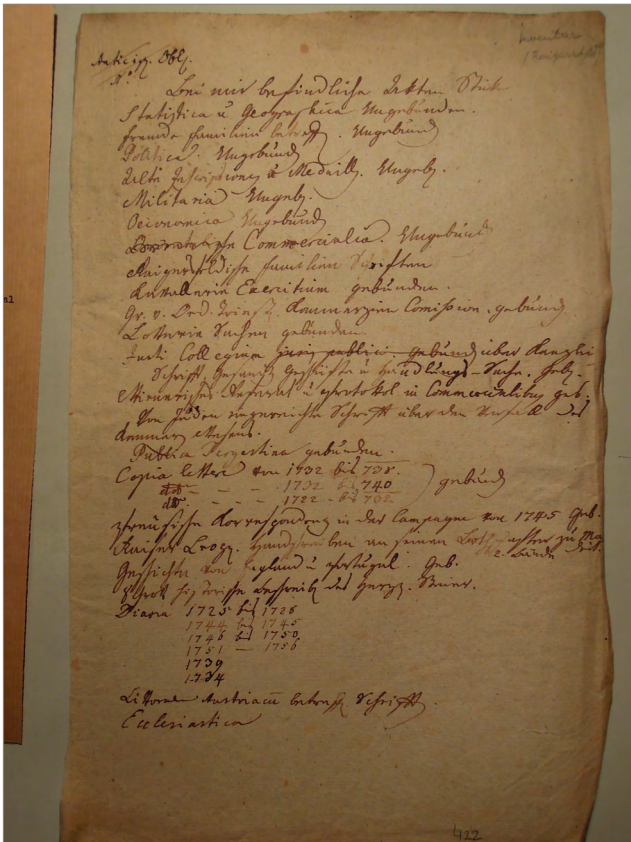 Inventar
Anticip. Obl.
N°
Bei mir befindliche Akten Stük
Statistica u Geographica Ungebunden.
fremde familien betreff. Ungebund
Politica. Ungebund
Alte Inscriptiones u Medaill. Ungeb.
Militaria Ungeb.
Oeconomica Ungebund
Commercialia. Ungebund
familien Schriften
Kavallerie Exercitium gebunden.
Gr. v. Ord. Triest. Kommerzien Comission. gebund
Lotterie Sachen gebunden
Justi Collegium juris publici gebund über Kanzlei
Schrift, Gesandt Geschäfte u Handlungs Sache. Geb.
Referat u Protokol in Commercialibus geb.
Von Juden eingereichte Schrift über den Verfall des
Publica gebunden.
Copia lettere von 1732 bis 738.
dto — — 1732 bis 740 gebund
dto — — 1722 - bis 732
Preusische Korrespondenz in der Campagne von 1745 Geb.
Kaiser Leop. Handschreiben an seinen Botschafter zu
2. Bände
Geschichte von England u Portugal. Geb.
historische Beschreib des Herz. Steier.
Diaria 1725 bis 1728
1744 bis 1745
1746 bis 1750
1751 — 1756
1739
1734
Littorale Austriacum betreff. Schrift.
Ecclesiastica
422